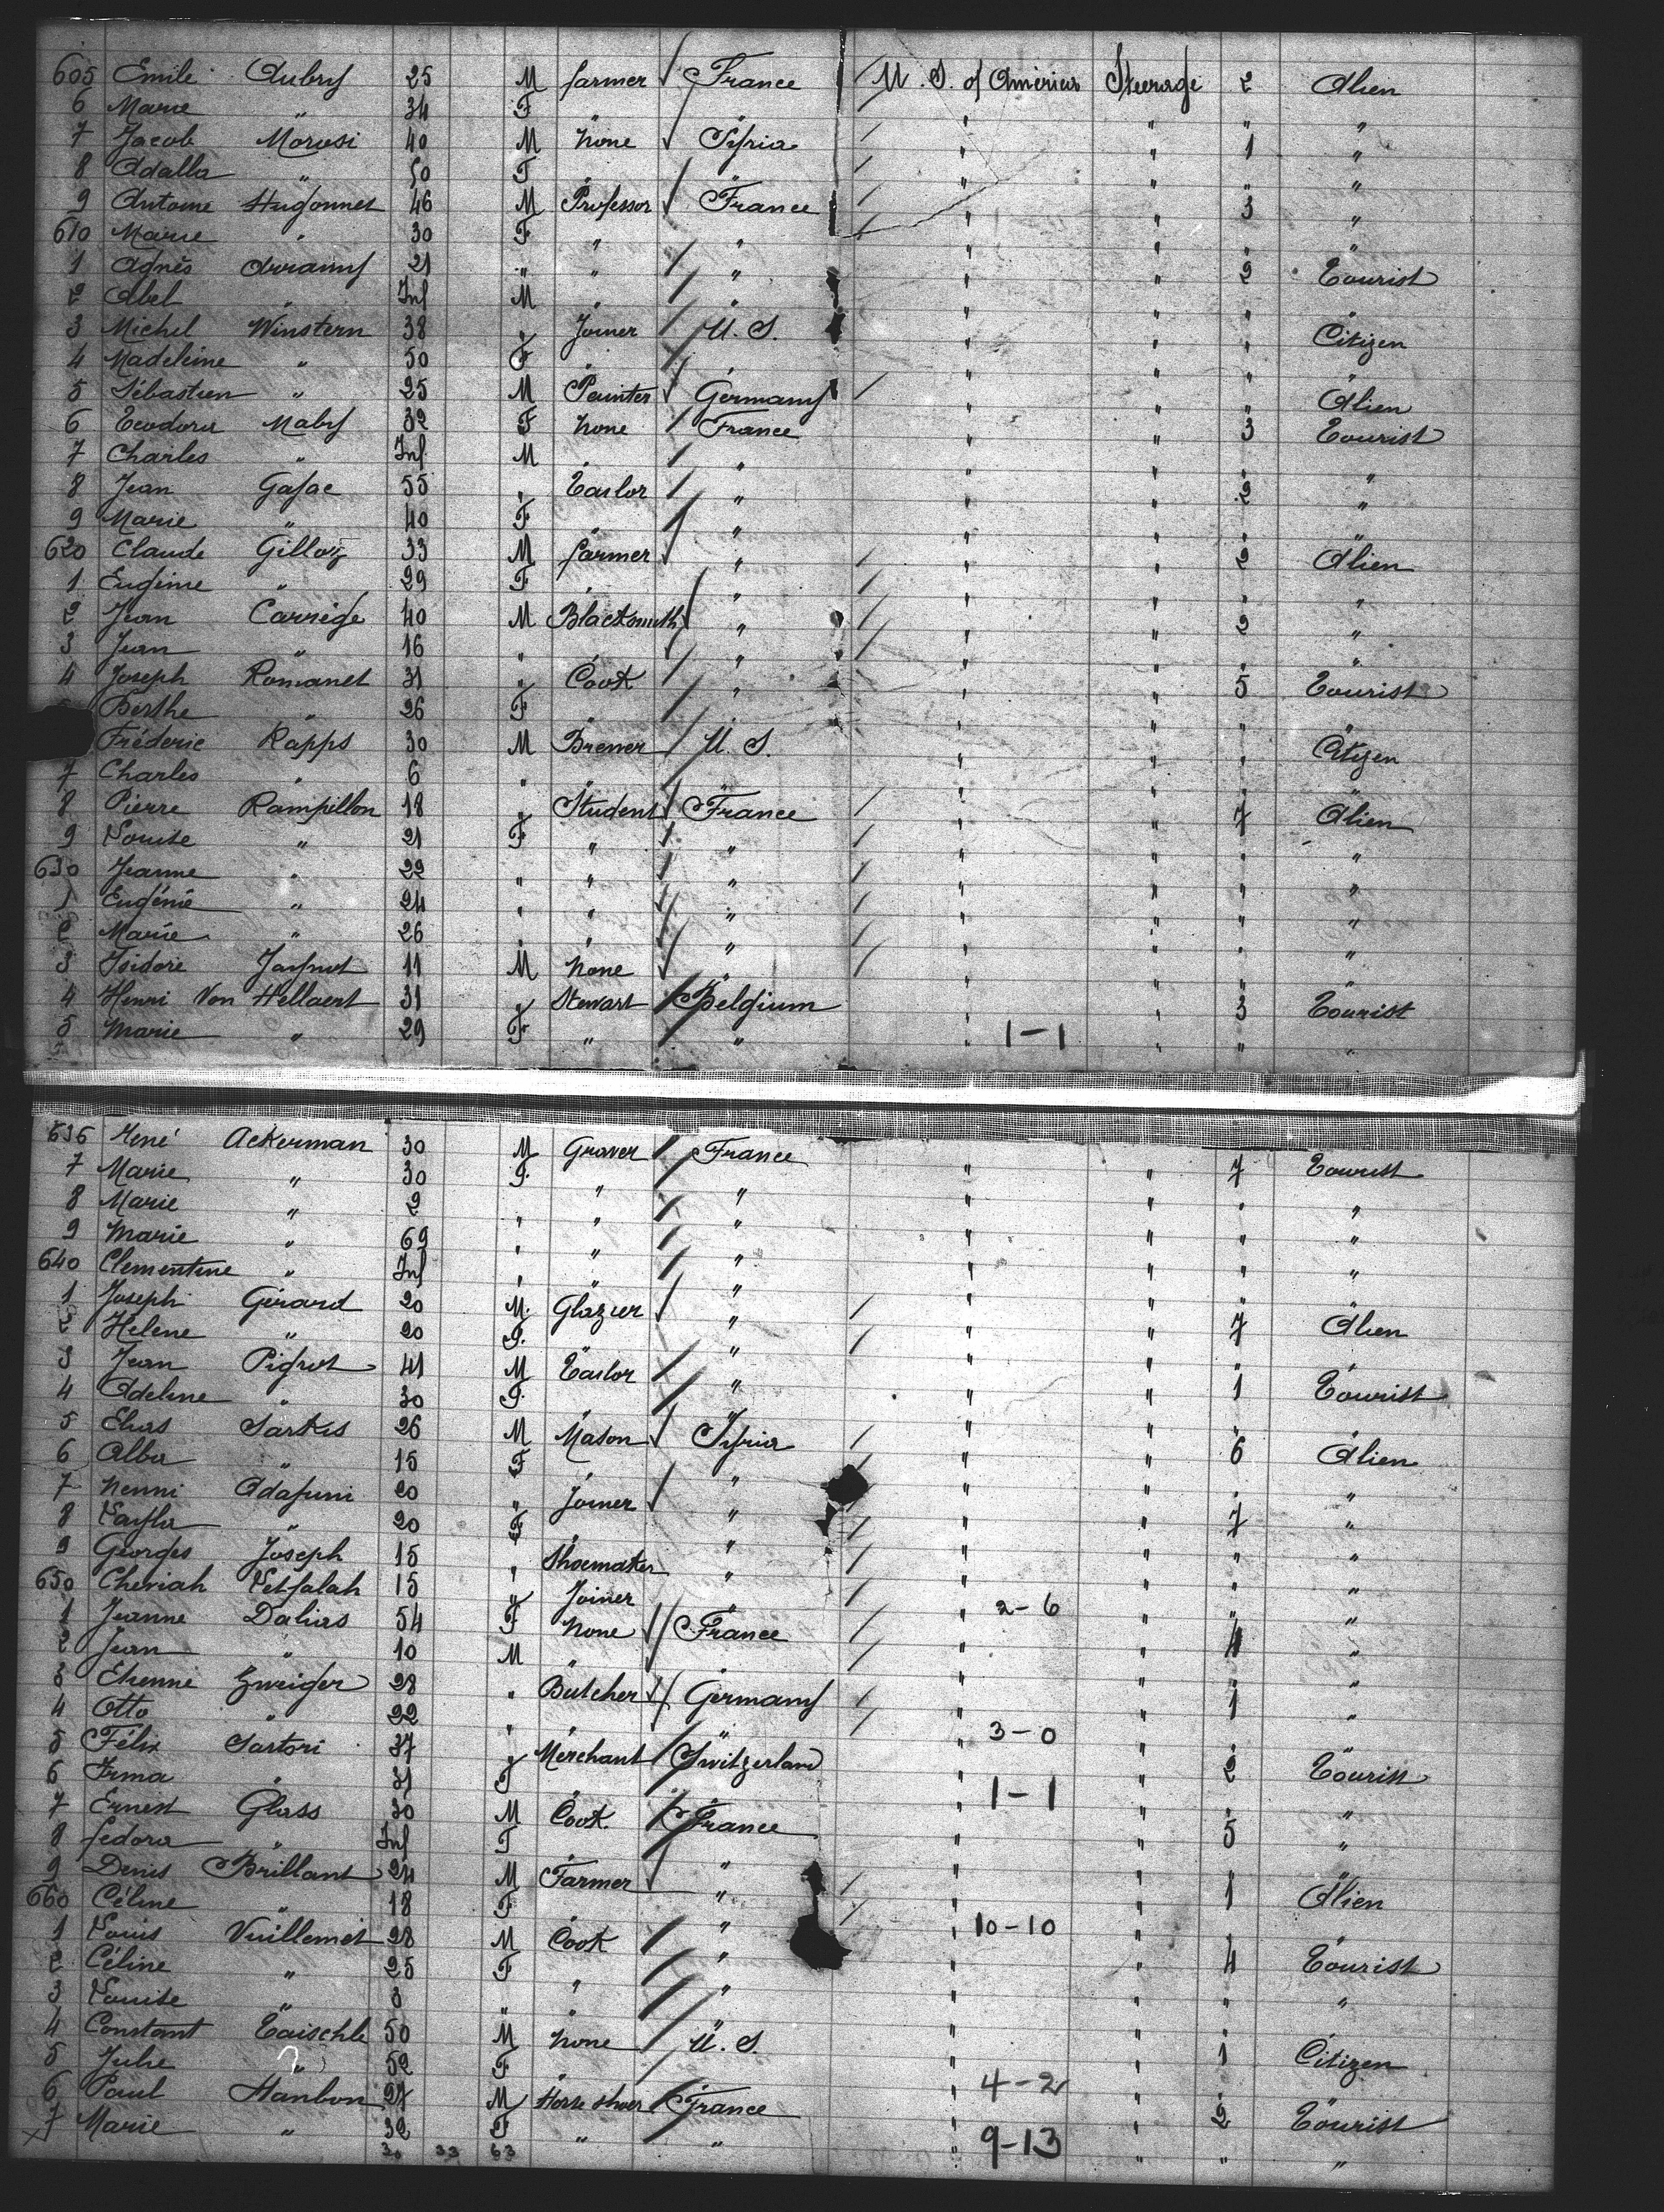 605 Emile Aubry 25 M farmer France U. S. of América Steerage 2 Alien
6 Marie " 34 F " " " " " "
7 Jacob Morosi 40 M None Syria " " 1 "
8 Adalla " 50 F " " " " " "
9 Antoine Hugonnet 46 M Professor France " " 3 "
610 Marie " 30 F " " " " " "
1 Agnès 21 " " " " " 2 Tourist
2 Abel " Inf M " " " " " "
3 Michel Winstern 38 " Joiner U. S. " " " Citizen
4 Madeleine " 50 F " " " " " "
5 Sébastien " 25 M Peinter Germany " " " Alien
6 Teodora Maby 32 F None France " " 3 Tourist
7 Charles " Inf M " " " " " "
8 Jean Gajac 55 " Tailor " " " 2 "
9 Marie " 40 F " " " " " "
620 Claude Gilloz 33 M farmer " " " 2 Alien
1 Eugénie " 29 F " " " " " "
2 Jean Carriège 40 M Blacksmith " " " 2 "
3 Jean " 16 " " " " " " "
4 Joseph Romanet 31 " Cook " " " 5 Tourist
Berthe " 26 F " " " " " "
Fréderic Rapps 30 M Brewer U. S. " " " Citizen
7 Charles " 6 " " " " " " "
8 Pierre Rampillon 18 " Student France " " 7 Alien
9 Louise " 21 F " " " " " "
630 Jeanne " 22 " " " " " " "
1 Eugénie " 24 " " " " " " "
2 Marie " 26 " " " " " " "
3 Isidore 11 M None " " " " "
4 Henri Von Hellaert 31 " Stewart Belgium " " 3 Tourist
5 Marie " 29 F " " 1-1 " " "
636 René Ackerman 30 M Graver France " " 7 Tourist
7 Marie " 30 F " " " " " "
8 Marie " 2 " " " " " " "
9 Marie " 69 " " " " " " "
640 Clementine " Inf " " " " " " "
1 Joseph Gérard 20 M. Glazier " " " 7 Alien
2 Helene " 20 F. " " " " " "
3 Jean Pignot 41 M Tailor " " " 1 Tourist
4 Adeline " 30 F " " " " " "
5 Elias Sarkis 26 M Mason Syria " " 6 Alien
6 Alba " 15 F " " " " " "
7 Nenni 20 " Joiner " " " 7 "
8 Layla " 20 F " " " " " "
9 Georges Joseph 15 " Shoemaker " " " " "
650 Cheriah 15 " Joiner " 2-6 " " "
1 Jeanne Dalias 54 F None France " " 4 "
2 Jean " 10 M " " " " " "
3 Etienne Zweiger 28 " Butcher Germany " " 1 "
4 Otto " 22 " " " 3-0 " " "
5 Félix Sartori 37 " Merchant Switzerland " " 2 Tourist
6 Irma " 31 F " " 1-1 " " "
7 Ernest Glass 30 M Cook France " " 5 "
8 fedora " Inf F " " " " " "
9 Denis Brillant 24 M Farmer " " " 1 Alien
660 Céline " 18 F " " 10-10 " " "
1 Louis Vuillemet 28 M Cook " " " 4 Tourist
2 Céline " 25 F " " " " " "
3 Louise " 3 " " " " " " "
4 Constant Taischle 50 M None U. S. " " 1 Citizen
5 Julie " 52 F " " 4-2 " " "
6 Paul Hanbon 27 M Horse shoer France " " 2 Tourist
7 Marie " 32 F " " 9-13 " " "
30 33 63